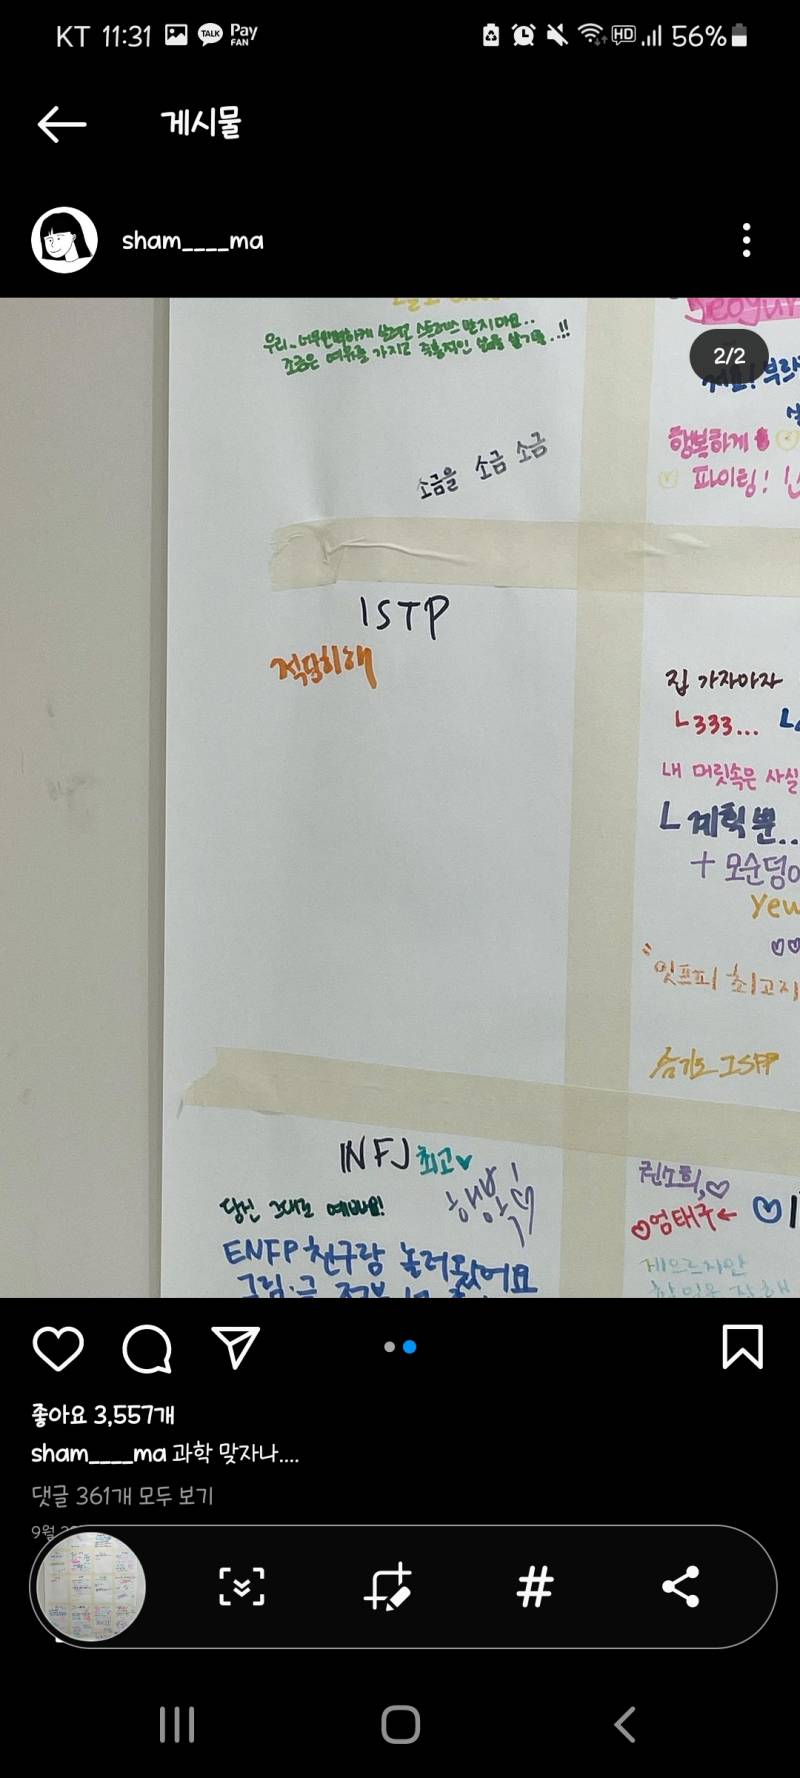 KT 11:31 TALK Pay FAN HD 56%
게시물
sham____ma
2/2
우리..너무완벽하게 살려고 스트레스 받지마요..
조금은 여유를 가지고 즉흥적인 삶을 살기를..!!
소금을 소금 소금
ISTP
적당히해
행복하게
파이팅!
집 가자아자
ㄴ333...
내 머릿속은 사실
ㄴ계획뿐..
+ 모순덩어
"잇프피 최고지
슴기도 ISFP
INFJ 최고
당신 그대로 예뻐요!
행복
ENFP 친구랑 놀러왔어요
권소희,
엄태구←
게으르지만
좋아요 3,557개
sham____ma 과학 맞자나....
댓글 361개 모두 보기
9월
#